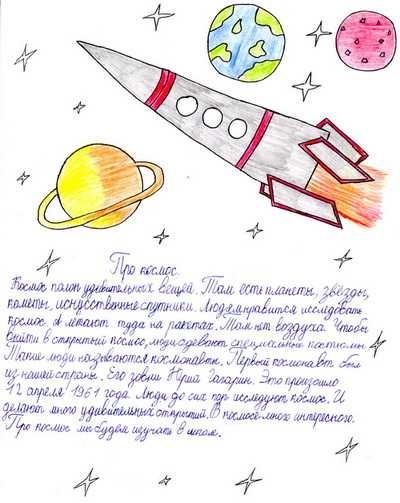 Про космос.
Космос полон удивительных вещей. Там есть планеты, звёзды,
кометы, искусственные спутники. Людям нравится исследовать
космос. И летают туда на ракетах. Там нет воздуха. Чтобы
выйти в открытый космос, люди одевают специальные костюмы.
Такие люди называются космонавты. Первый космонавт был
из нашей страны. Его зовут Юрий Гагарин. Это произошло
12 апреля 1961 года. Люди до сих пор исследуют космос. И
делают много удивительных открытий. В космосе много интересного.
Про космос мы будем изучать в школе.